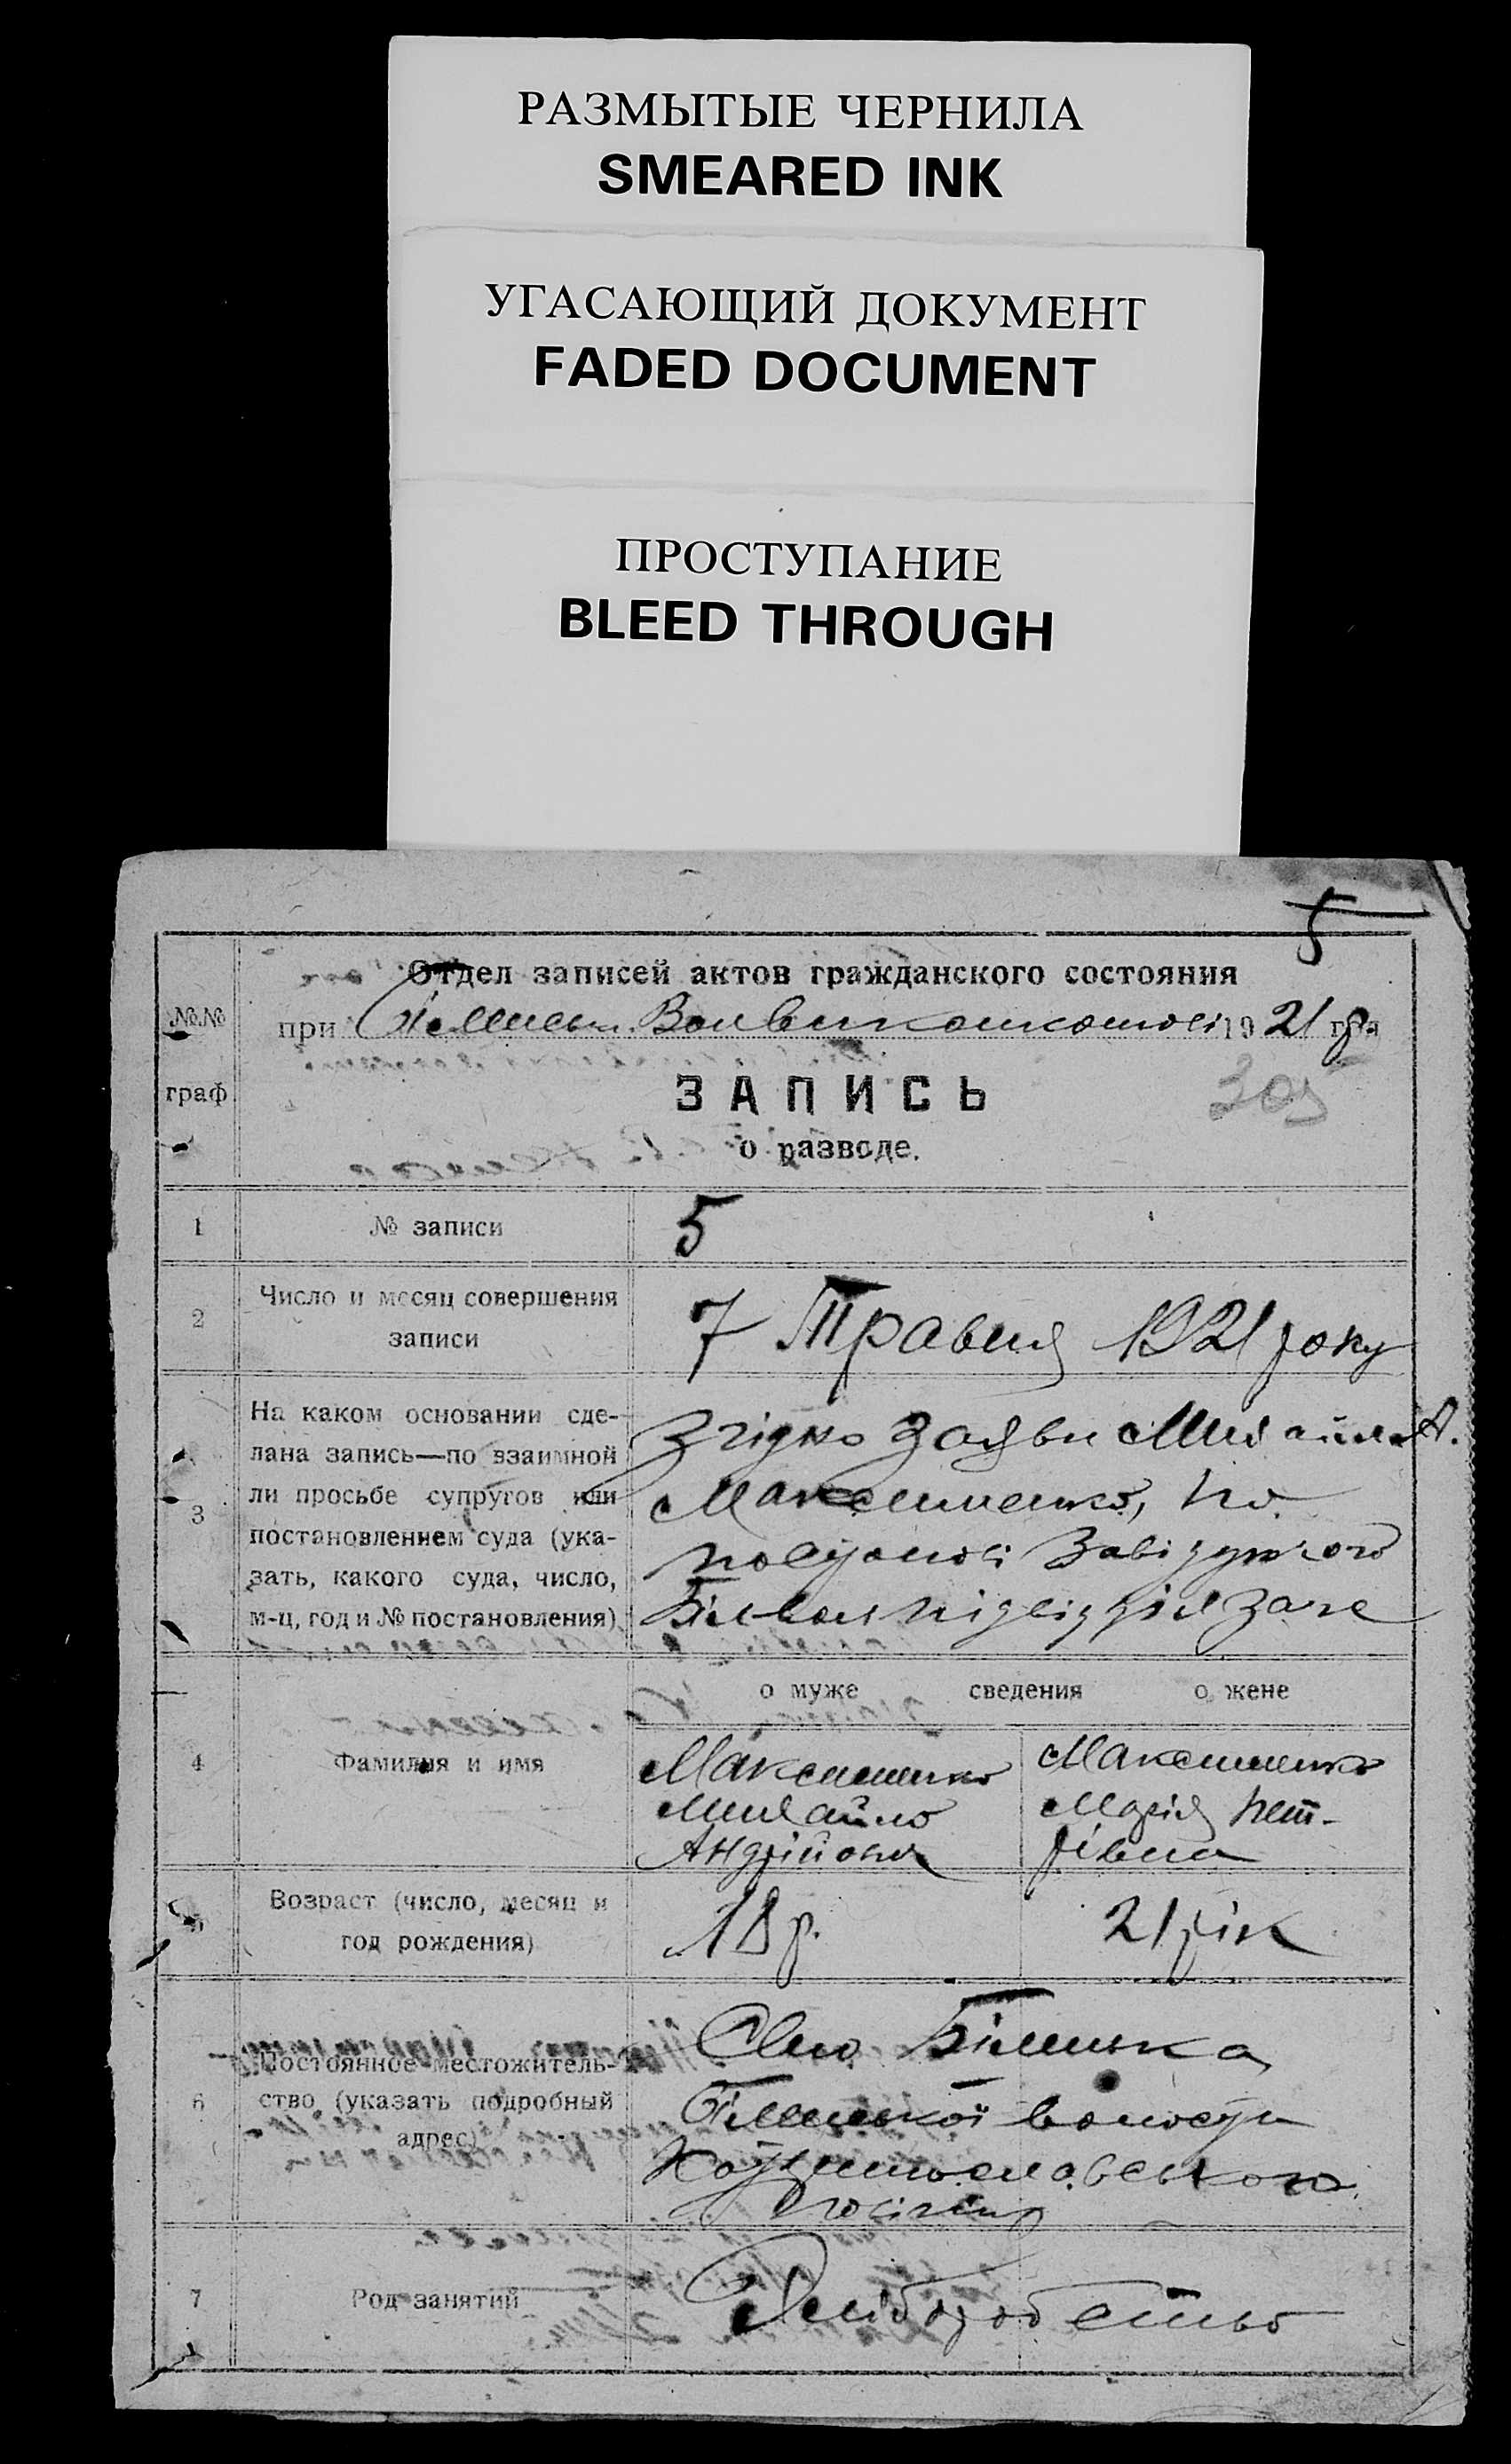 РАЗМЫТЫЕ ЧЕРНИЛА
SMEARED INK
УГАСАЮЩИЙ ДОКУМЕНТ
FADED DOCUMENT
ПРОСТУПАНИЕ
BLEED THROUGH
5
Отдел записей актов гражданского состояния
№№
при Волвиконкомові 1921 р
граф
ЗАПИСЬ
305
о разводе.
1 № записи 5
2 Число и месяц совершения записи 7 Травня 1921 року
3 На каком основании сде-
лана запись—по взаимной
ли просьбе супругов или
постановлением суда (ука-
зать, какого суда, число,
м-ц, год и № постановления)
Згідно Заяви Михайла А.
Максименко, по
Завідуючого
підвідділ загс
о муже сведения о жене
4 Фамилия и имя
Максименко
Михайло
Андрійович
Максименко
Марія Пет-
рівна
5 Возраст (число, месяц и
год рождения)
18 р. 21 рік
6 Постоянное местожитель-
ство (указать подробный
адрес)
Село Біленька
Біленької волости
повіту
7 Род занятий Хліборобство